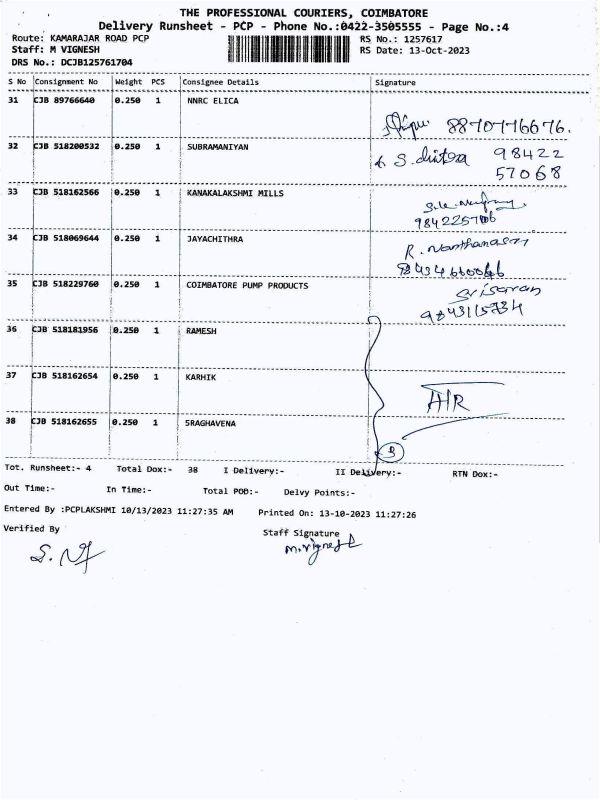 THE PROFESSIONAL COURIERS, COIMBATORE
Delivery Runsheet - PCP - Phone No.:0422-3505555 - Page No.:4
Route: KAMARAJAR ROAD PCP RS No.: 1257617
Staff: M VIGNESH RS Date: 13-Oct-2023
DRS No.: DCJB125761704
S No Consignment No Weight PCS Consignee Details Signature
31 CJB 89766640 0.250 1 NNRC ELICA
8870776676.
32 CJB 518200532 0.250 1 SUBRAMANIYAN
S. chitra 98422
57068
33 CJB 518162566 0.250 1 KANAKALAKSHMI MILLS
34 CJB 518069644 0.250 1 JAYACHITHRA
35 CJB 518229760 0.250 1 COIMBATORE PUMP PRODUCTS
Srisaran
9843115734
36 CJB 518181956 0.250 1 RAMESH
37 CJB 518162654 0.250 1 KARHIK
38 CJB 518162655 0.250 1 5RAGHAVENA
3
Tot. Runsheet:- 4 Total Dox:- 38 I Delivery:- II Delivery:- RTN Dox:-
Out Time:- In Time:- Total POD:- Delvy Points:-
Entered By :PCPLAKSHMI 10/13/2023 11:27:35 AM Printed On: 13-10-2023 11:27:26
Verified By Staff Signature
M.Vignesh